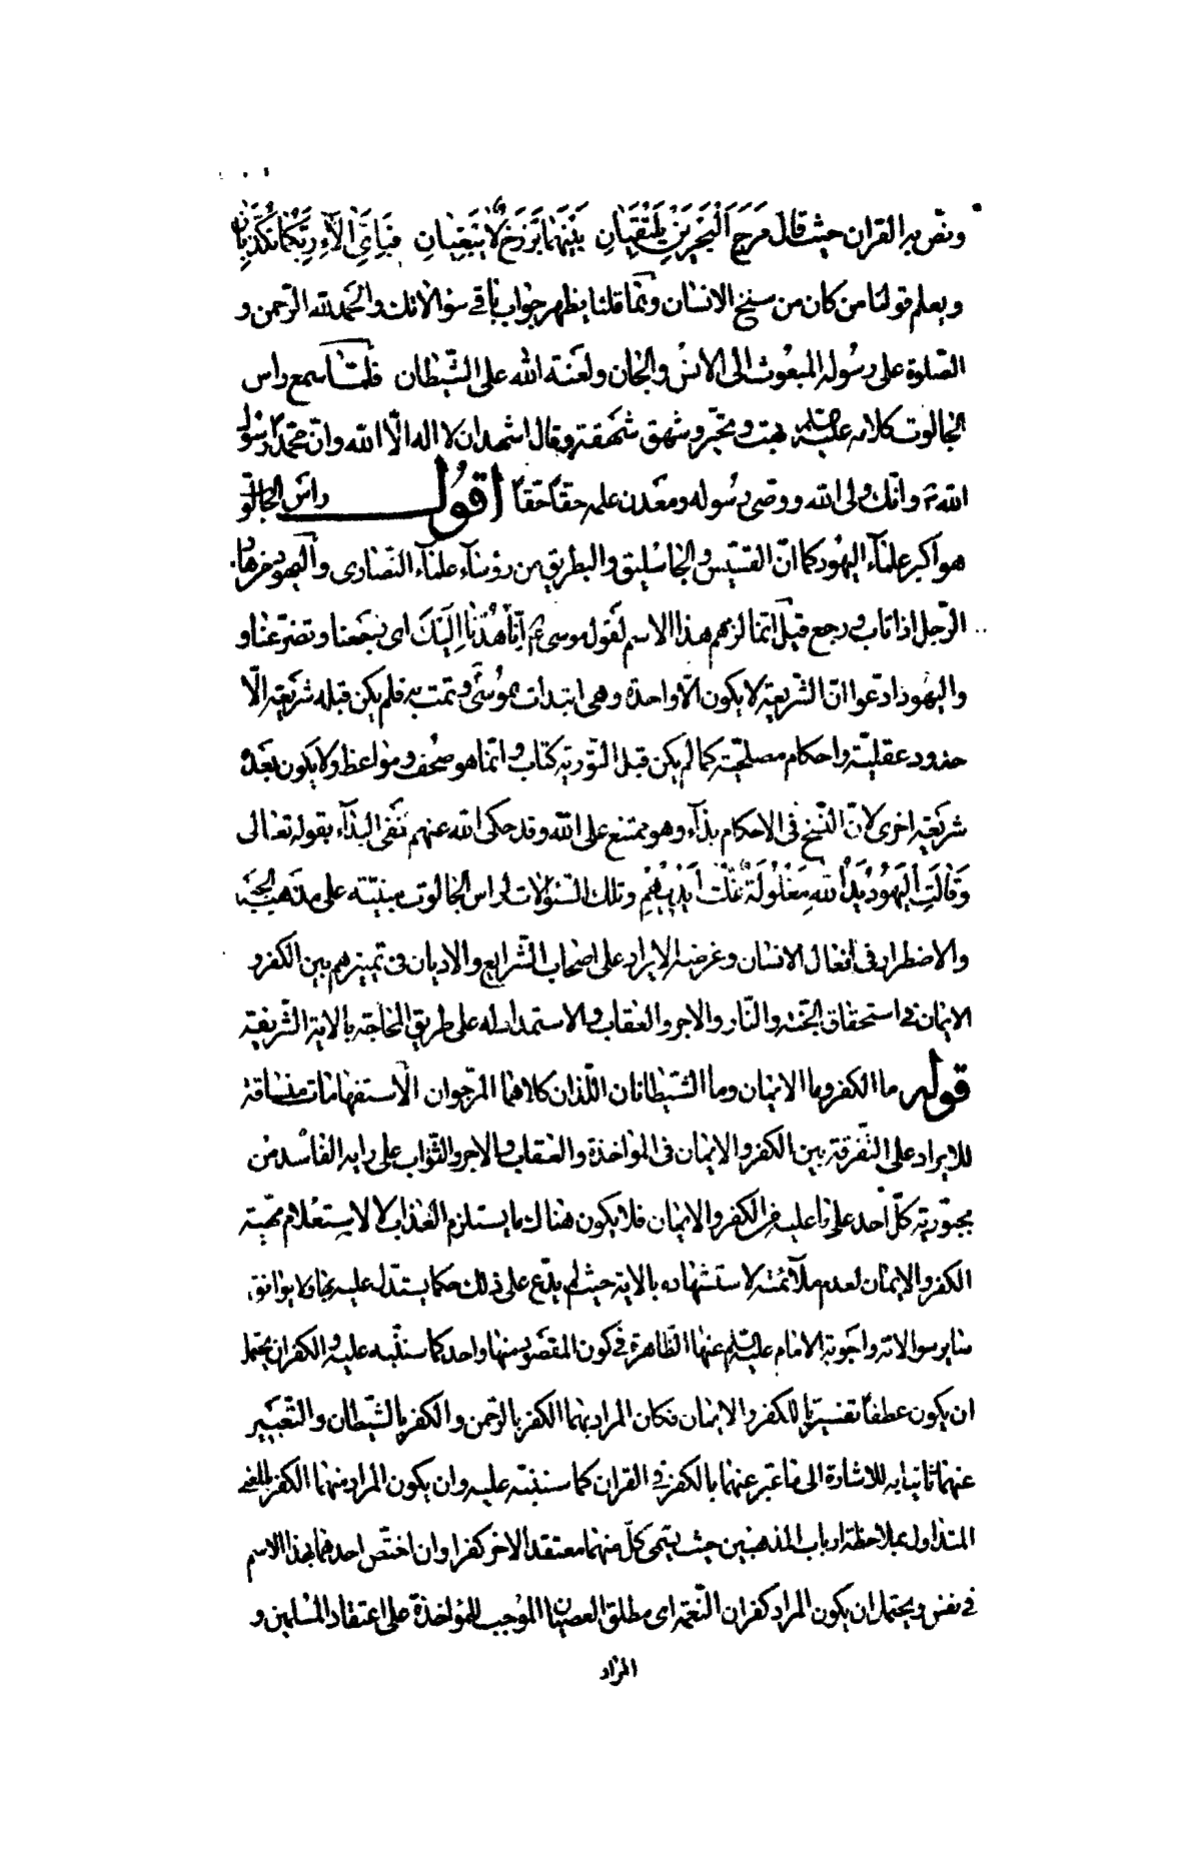 ونص به القران حيث قال مَرَجَ الْبَحْرَيْنِ يَلْتَقِيَانِ بَيْنَهُمَا بَرْزَخٌ لَا يَبْغِيَانِ فَبِاَيِّ اٰلَاءِ رَبِّكُمَا تُكَذِّبَانِ
ويعلم قولنا من كان من سنخ الانسان وبما قلنا يظهر جواب باقى سؤالاتك والحمد لله الرحمن و
الصلوة على رسوله المبعوث الى الانس والجان ولعنة الله على الشيطان فلما سمع راس
الجالوت كلامه عليه السلم بهت وتحيّر وشهق شهقة وقال اشهد ان لا اله الّا الله وانّ محمّدا رسول
الله وانّك ولى الله ووصى رسوله ومعدن علمه حقّا حقّا اقول راس الجالوت
هو اكبر علماء اليهود كما انّ القسّيس والجاثليق والبطريق من رؤساء علماء النصارى واليهود من هاد
الرّجل اذا تاب ورجع قيل انّما لزمهم هذا الاسم لقول موسى ع اِنَّا هُدْنَا اِلَيْكَ اى رجعنا وتضرّعنا و
واليهود ادّعوا انّ الشّريعة لا يكون الّا واحدة وهى ابتدات بموسى وتمت به فلم يكن قبله شريعة الّا
حدود عقليّة واحكام مصلحيّة كما لم يكن قبل التّورية كتاب وانّما هو صحف ومواعظ ولا يكون بعده
شريعة اخرى لانّ النّسخ فى الاحكام بداء وهو ممتنع على الله وقد حكى الله عنهم نفى البداء بقوله تعالى
وَقَالَتِ الْيَهُودُ يَدُ اللهِ مَغْلُولَةٌ غُلَّتْ اَيْدِيهِمْ وتلك السّؤلات لراس الجالوت مبنيّة على مذهب الجبر
والاضطرار فى افعال الانسان وغرضه الايراد على اصحاب الشّرايع والاديان فى تميزهم بين الكفر و
الايمان فى استحقاق الجنّة والنّار والاجر والعقاب والاستمداد له على طريق المحاجّة بالاية الشّريفة
قوله ما الكفر وما الايمان وما الشّيطانان اللّذان كلاهما المرجوان الاستفهامات منساقة
للايراد على التّفرقة بين الكفر والايمان فى المواخذة والعقاب والاجر والثّواب على رايه الفاسد من
مجبوريّة كلّ احد على ما عليه من الكفر والايمان فلا يكون هناك ما يستلزم العذاب لا لاستعلام مهيّة
الكفر والايمان لعدم ملائمته لاستشهاده بالاية حيث لم يدّع على ذلك حكما يستدل عليه بها ولا يوافق
ساير سوالاته واجوبة الامام عليه السّلم عنها الظّاهرة فى كون المقصود منها واحد كما سننبّه عليه والكفران يحتمل
ان يكون عطفا تفسيريّا للكفر والايمان فكان المراد بهما الكفر بالرّحمن والكفر بالشّيطان والتّعبير
عنهما ثانيا به للاشارة الى ما عبّر عنهما بالكفر فى القران كما سننبّه عليه وان يكون المراد منهما الكفر بالمعنى
المتداول بملاحظة ارباب المذهبين حيث يسمّى كلّ منهما معتقد الاخر كفرا وان اختّص احدهما بهذا الاسم
فى نفس ويحتمل ان يكون المراد كفران النّعمة اى مطلق العصيان الموجب للمؤاخذة على اعتقاد المسلمين و
المراد